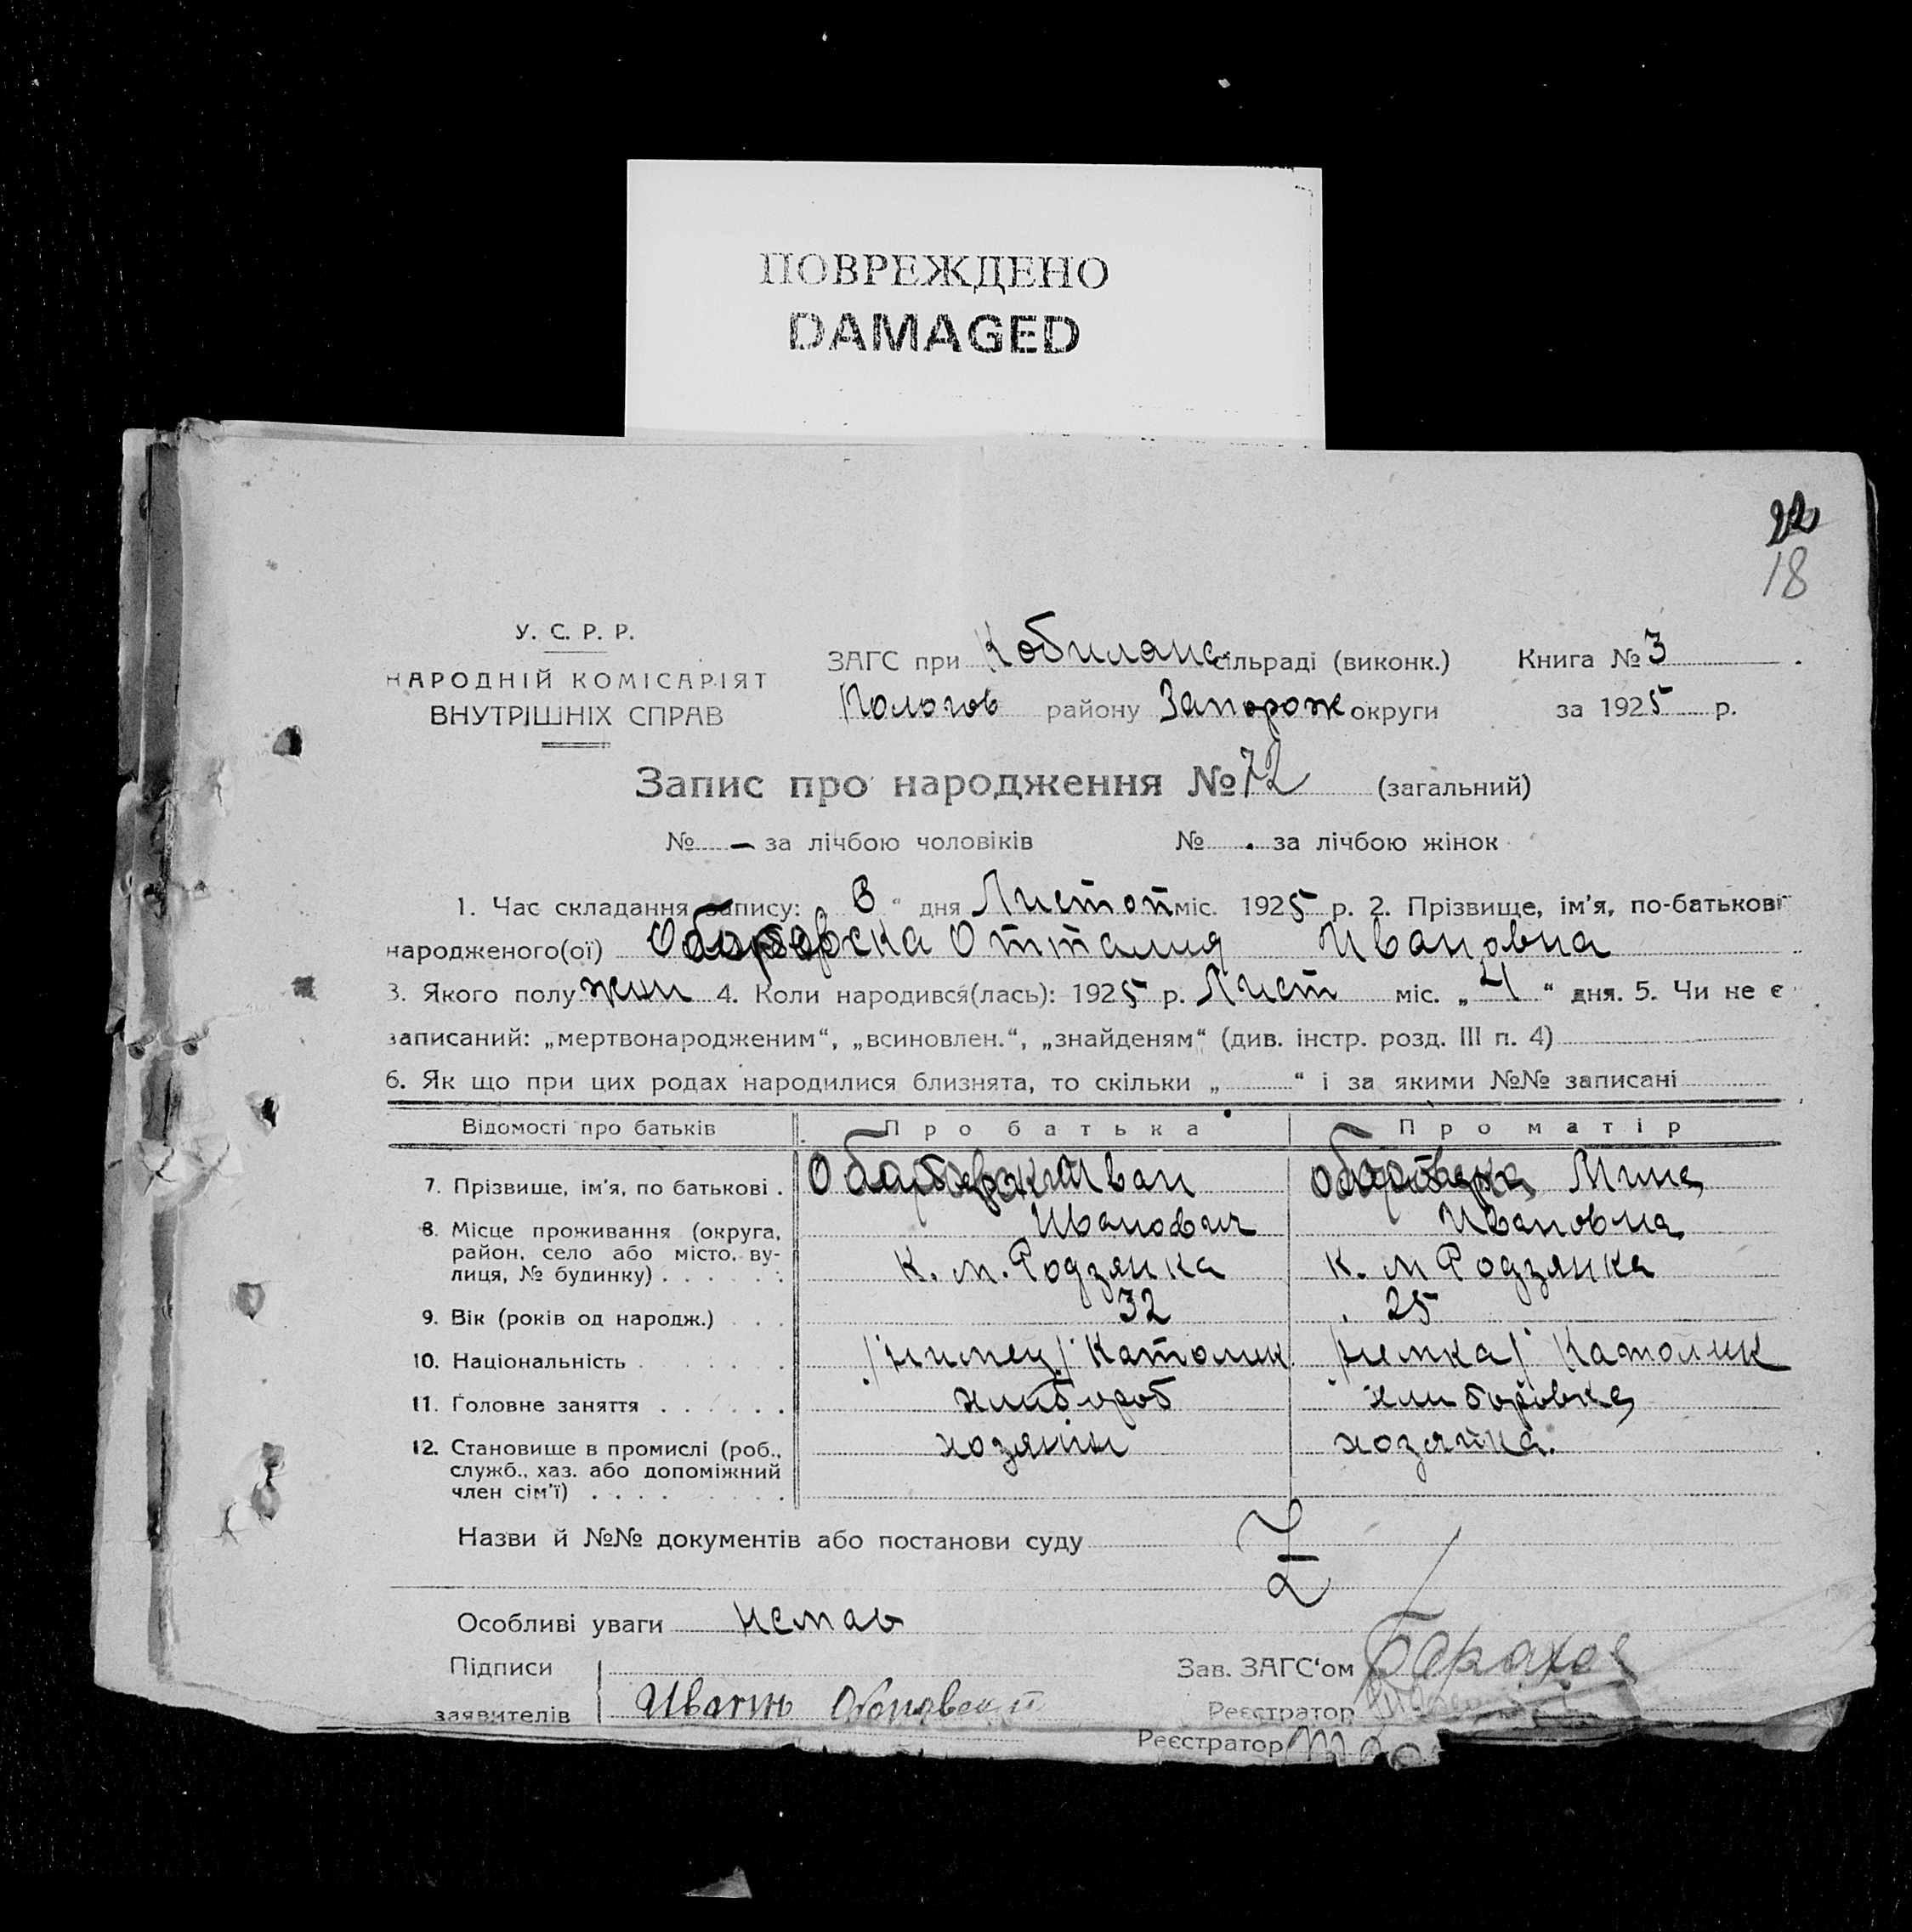 ПОВРЕЖДЕНО
DAMAGED
22
18
У. С. Р. Р.
НАРОДНІЙ КОМІСАРІЯТ
ВНУТРІШНІХ СПРАВ
ЗАГС при Кобилянс. сільраді (виконк.) Книга № 3
Пологов району Запорож округи за 1925 р.
Запис про народження № 72 (загальний)
№ — за лічбою чоловіків № за лічбою жінок
1. Час складання запису: дня Листоп міс. 1925 р. 2. Прізвище, ім'я, по-батькові
народженого(ої) Отталия Ивановна
3. Якого полу жин 4. Коли народився(лась): 1925 р. Лист міс. „4“ дня. 5. Чи не є
записаний: „мертвонародженим“, „всиновлен.“, „знайденям“ (див. інстр. розд. III п. 4)
6. Як що при цих родах народилися близнята, то скільки „ “ і за якими №№ записані
Відомості про батьків Про батька Про матір
7. Прізвище, ім'я, по батькові . Иван
8. Місце проживання (округа, Иванович Ивановна
район, село або місто, ву-
лиця, № будинку) . . . . . . К. м. Родзянка К. м Родзянка
9. Вік (років од народж.) . . . 32 25
10. Національність . . . . . . /нимец/ Католик /немка/ Католик
11. Головне заняття . . . . . . хлибороб хлиборобка
12. Становище в промислі (роб., хозяин хозяйка.
служб., хаз. або допоміжний
член сім'ї) . . . .
Назви й №№ документів або постанови суду
Особливі уваги немає
Підписи
заявителів Иванъ
Зав. ЗАГС'ом
Реєстратор
Реєстратор